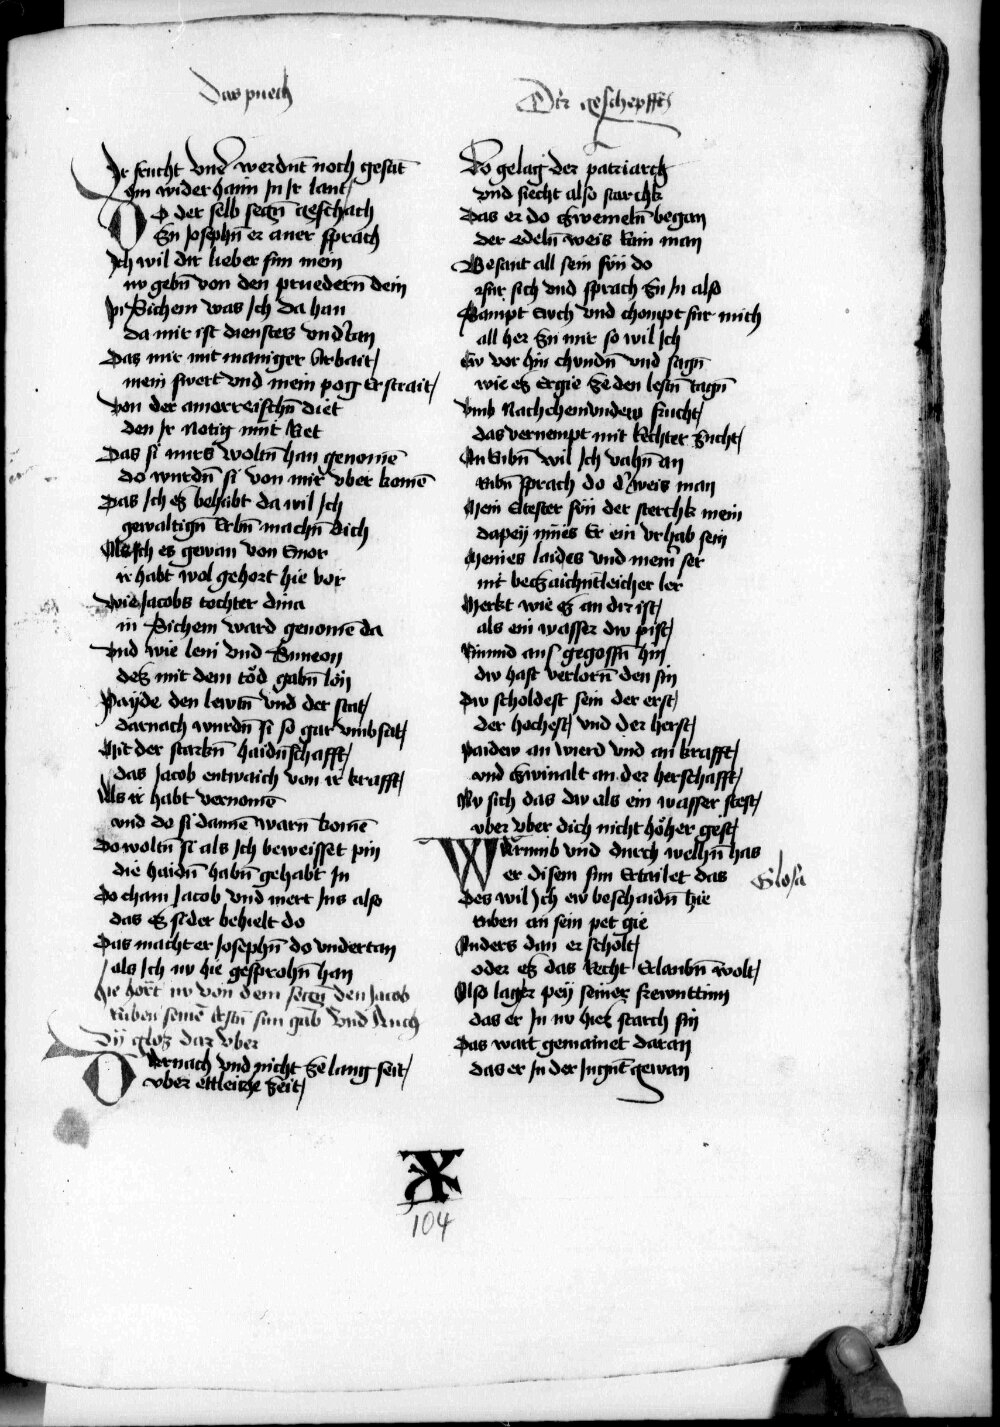 Das puech
Der geschepfft
Ir frucht vnd werdnt noch gesat
hin wider haim In Ir lant
DO der selb segn geschach
Zu Josephn er aner sprach
Ich wil dir lieber sun mein
nv gebn von den pruedern dein
pi Sichem was Ich da han
da mir ist dienstes vndtan
Das mir mit maniger Arbait
mein swert vnd mein pog Erstrait
Von der amorreischn diet
den Ir notig mit Ret
Das si mirs woltn han genomē
do wurdn si von mir vber komē
Das Ich eß behabt da wil Ich
gewaltign Erbn machn dich
Als Ich es gewan von Emor
ir habt wol gehort hie vor
Wie Jacobs tochter dina
in Sichem ward genomē da
Vnd wie leui vnd Simeon
deß mit dem tod gabn lon
Payde den lewtn vnd der stat
darnach wurdn si so gar vmbsat
Mit der starkn haidnschafft
das Jacob entwaich von ir krafft
Als ir habt vernomē
vnd do si dannē warn komē
Do woltn si als Ich beweisset pin
die haidn habn gehabt In
Do cham Jacob vnd wert Ins also
das eß sider behielt do
Das macht er Josephn do vndertan
als Ich nv hie gesprochn han
hie hort nv von dem segn den Jacob
Ruben seinē Erstn sun gab vnd Auch
Dy gloß dar vber
DArnach vnd nicht ze lang seit
vber ettleiche zeit
Do gelag der patriarch
vnd siecht also starchk
Das er do zwemeln began
der edeln weis Rain man
Besant all sein sūn do
fur sich vnd sprach zu In also
Sampt Ewch vnd chompt fur mich
all her zu mir so wil Ich
Ew vor hin chundn vnd sagn
wie eß Ergie ze den lestn tagn
Vmb Nachchemundew frucht
das vernempt mit Rechter zucht
An Rubn wil Ich vahn an
Rubn sprach do d weis man
Mein Eltester sūn der sterchk mein
dapey mīes Er ein vrhab sein
Meines laides vnd meins ser
mit bezaichntleicher ler
Merkt wie eß an dir ist
als ein wasser dw pist
Rinund aus gegossn hin
dw hast verlorn den sin
Dw scholdest sein der erst
der hochest vnd der herst
Paidew an wierd vnd an krafft
vnd zwinalt an der herschafft
Nv sich das dw als ein wasser stest
vber vber dich nicht höher gest
WArumb vnd durch welhn has
er disem sun Ertailet das
Glosa
Des wil Ich ew beschaidn hie
Ruben an sein pet gie
Anders dan er scholt
oder eß das Recht Erlaubn wolt
Also lag er pey seiner frewnttinn
das er In nv hieß starch sin
Das wart gemainet daran
das er In der Jugnt gewan
104